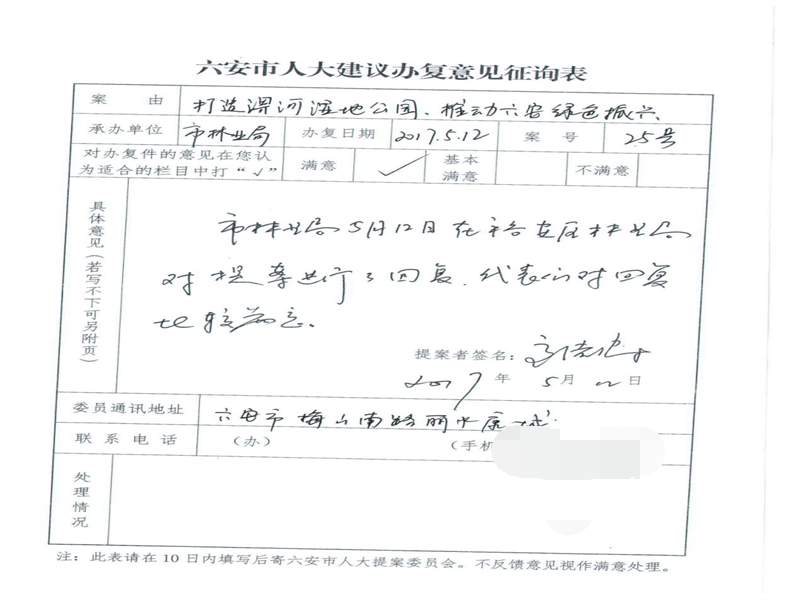 六安市人大建议办复意见征询表
案 由 打造淠河湿地公园、推动六安绿色振兴
承办单位 市林业局 办复日期 2017.5.12 案 号 25号
对办复件的意见在您认为适合的栏目中打“√” 满意 √ 基本满意 不满意
具体意见（若写不下可另附页）
市林业局5月12日在裕安区林业局
对提案进行了回复，代表们对回复
比较满意。
提案者签名：
2017年5月12日
委员通讯地址 六安市梅山南路丽水康城
联系电话 （办） （手机
处理情况
注：此表请在10日内填写后寄六安市人大提案委员会。不反馈意见视作满意处理。